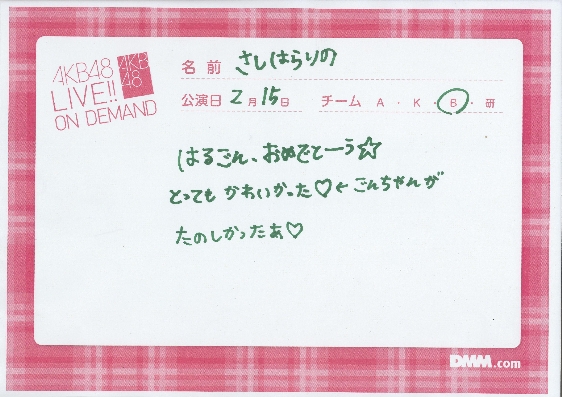 AKB48
LIVE!!
ON DEMAND
AKB
48
名前 さしはらりの
公演日 2月15日 チーム A・K・B・研
はるごん、おめでとーう☆
とっても かわいかった♡←ごんちゃんが
たのしかったあ♡
DMM.com